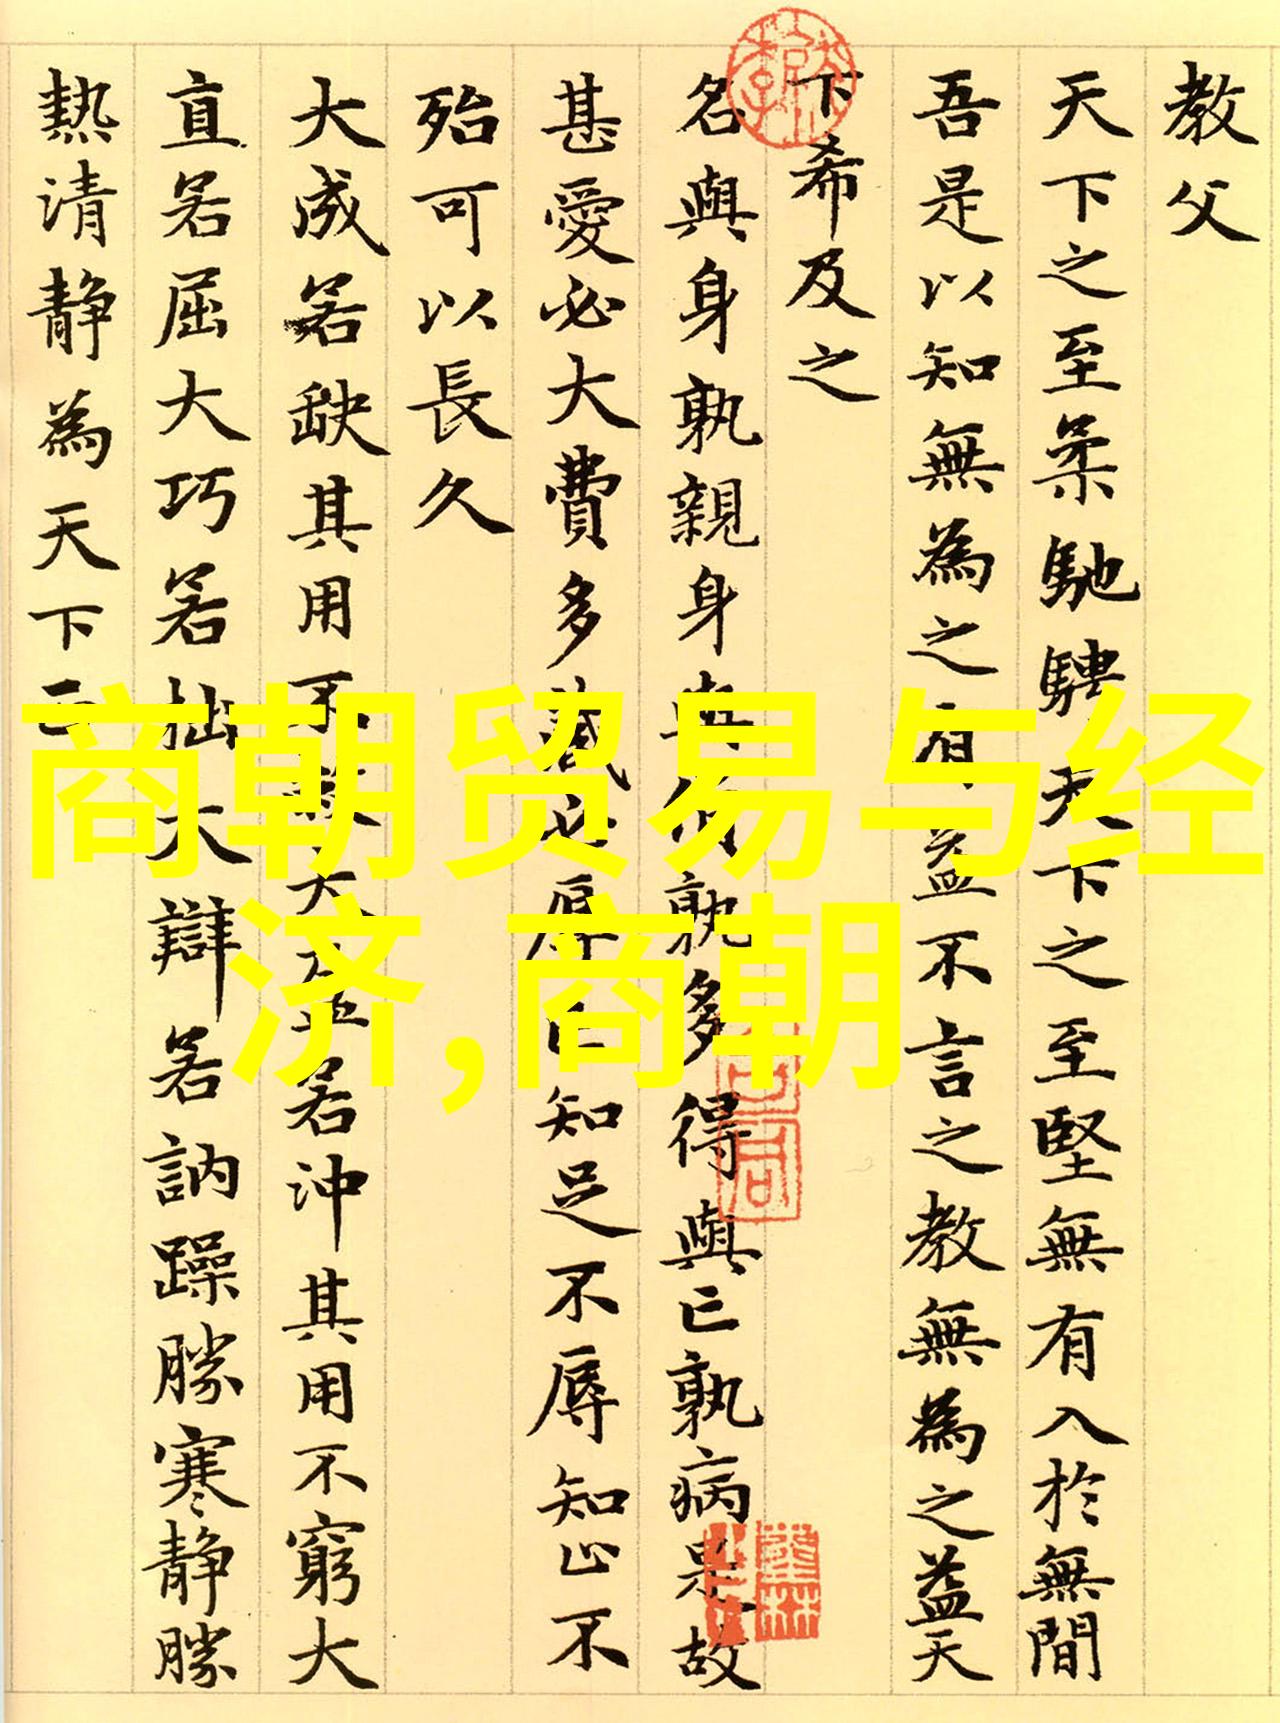 教父
天下之至柔馳騁天下之至堅無有入於無間
吾是以知無為之有益不言之教無為之益天
下希及之
名與身孰親身與貨孰多得與亡孰病是故
甚愛必大費多藏必厚亡知足不辱知止不
殆可以長久
大成若缺其用不敝大盈若沖其用不窮大
直若屈大巧若拙大辯若訥躁勝寒静勝
熱清静為天下正
商朝贸易与经
济,商朝